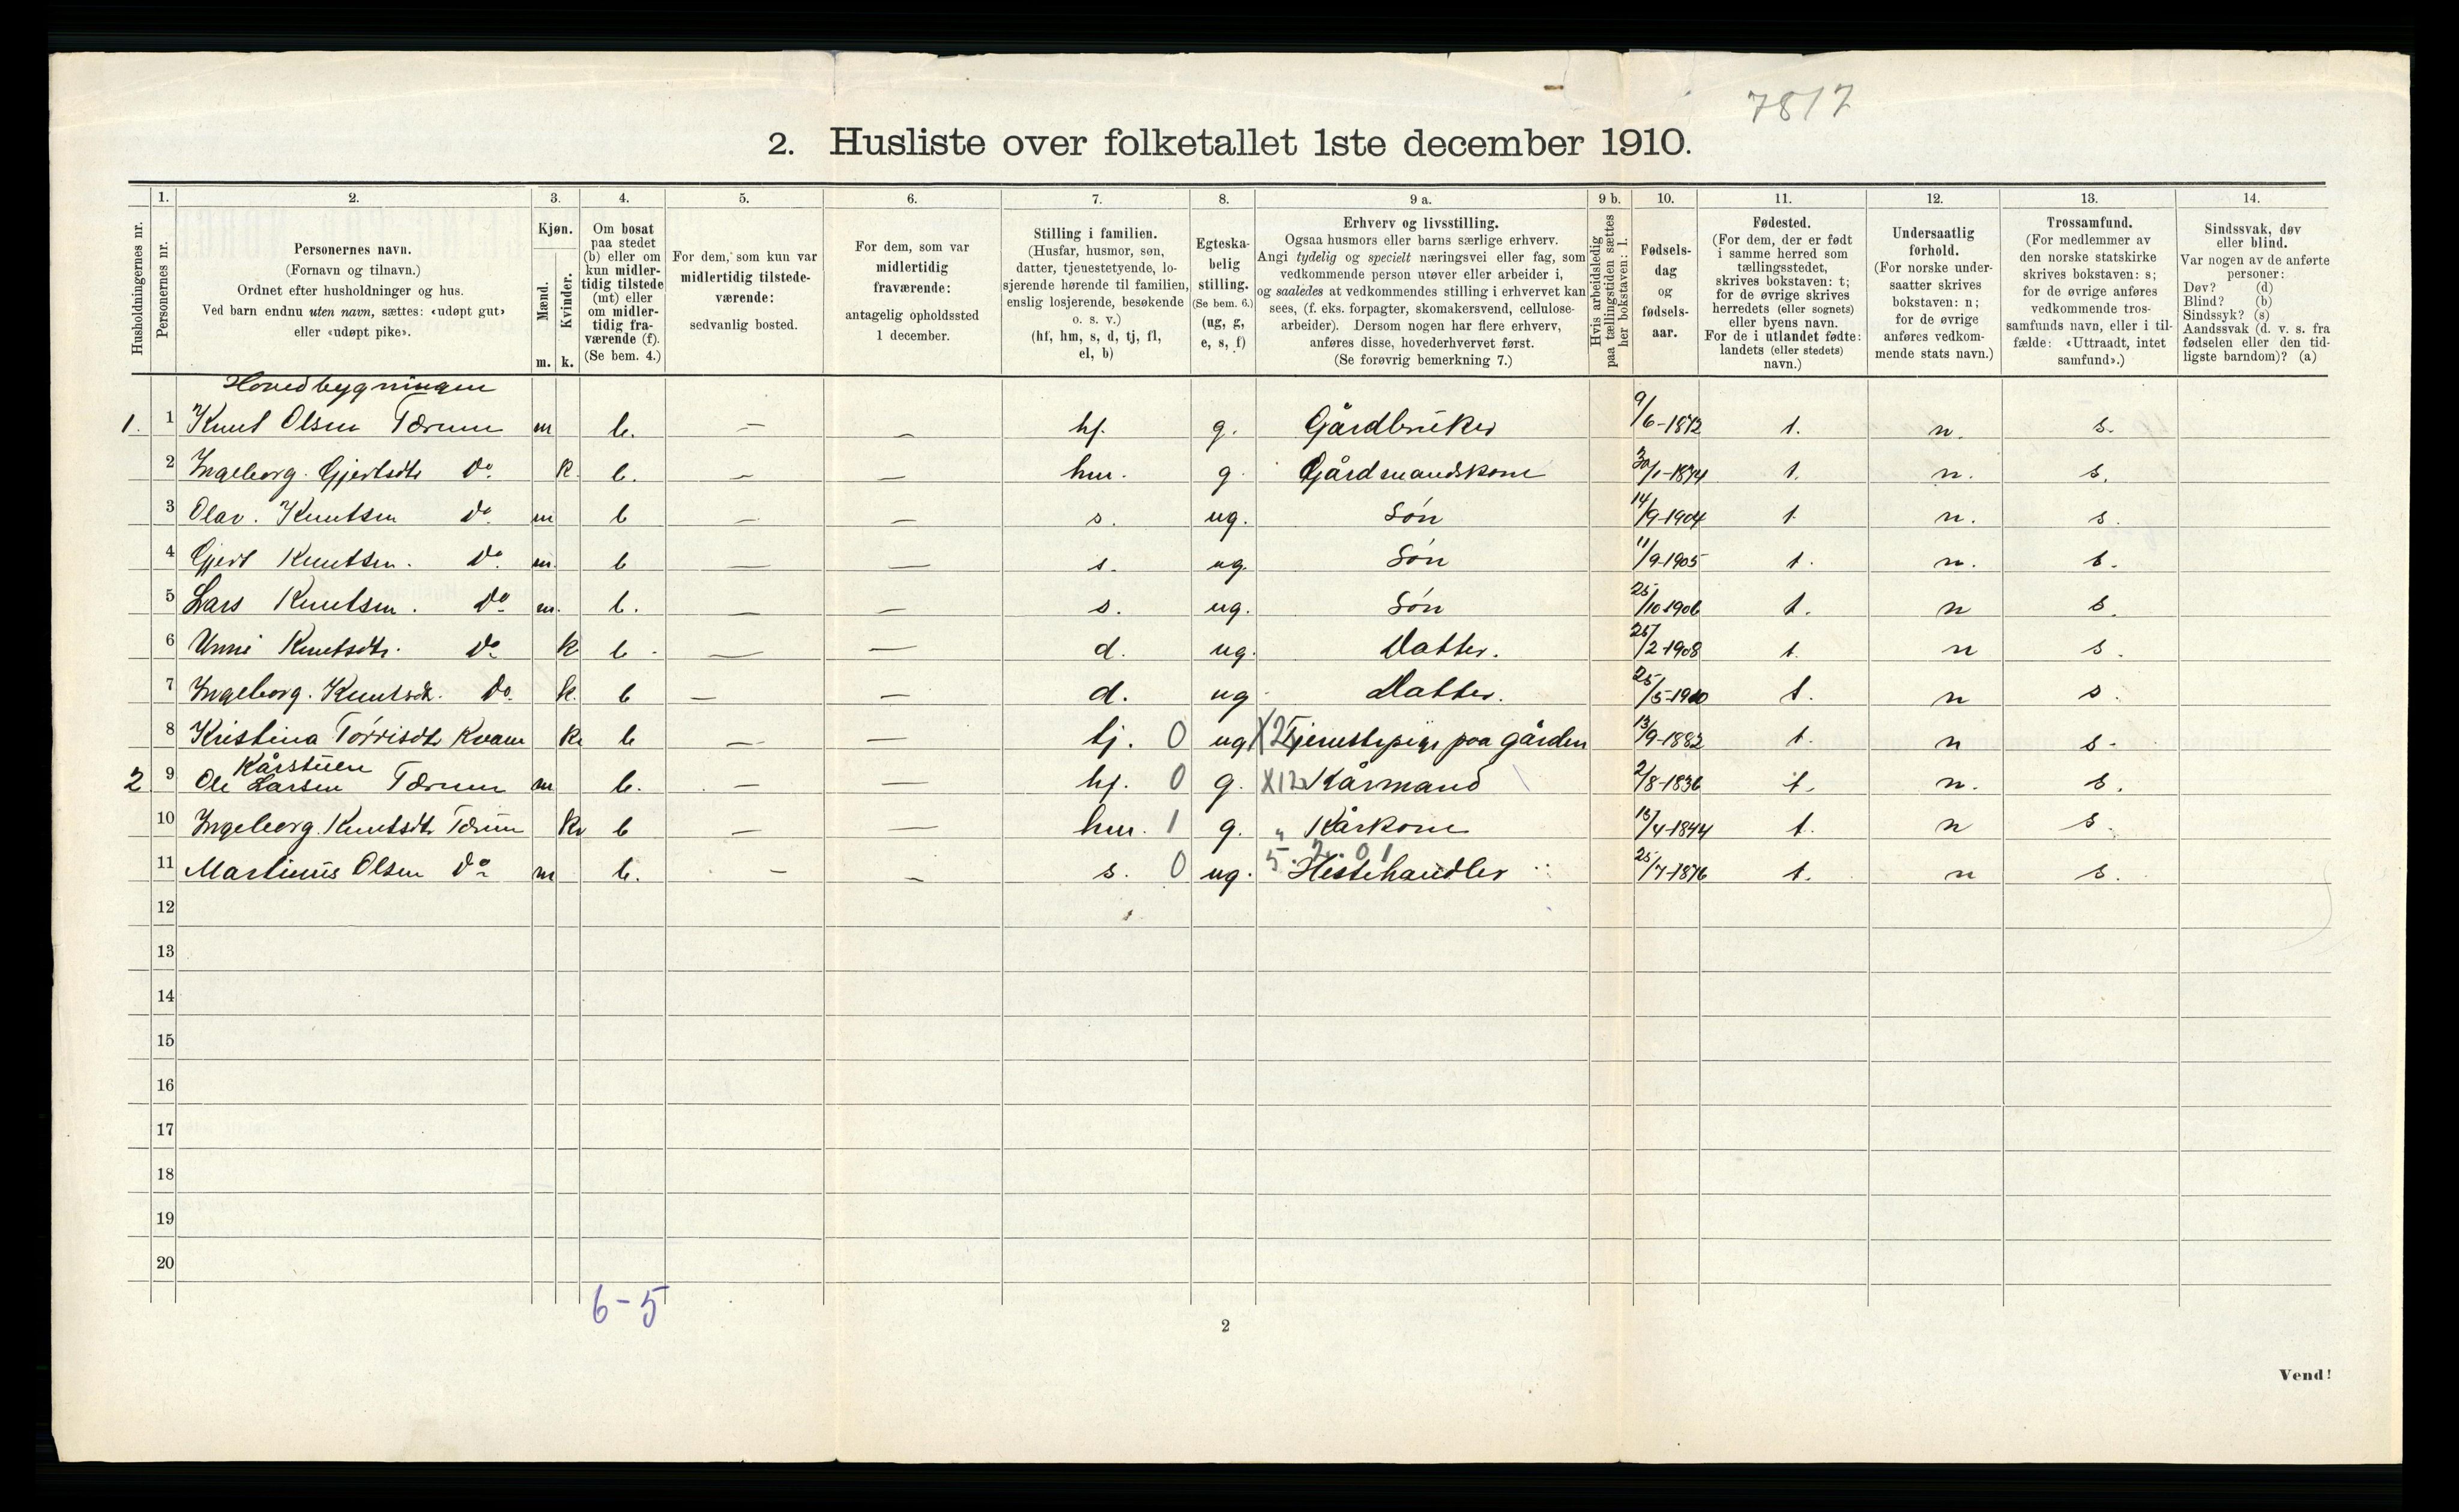 7817
2. Husliste over folketallet 1ste december 1910.
Husholdningernes nr.
1. Personernes nr.
2. Personernes navn.
(Fornavn og tilnavn.)
Ordnet efter husholdninger og hus.
Ved barn endnu uten navn, sættes: «udøpt gut»
eller «udøpt pike».
3. Kjøn.
Mænd. Kvinder.
m. k.
4. Om bosat
paa stedet
(b) eller om
kun midler-
tidig tilstede
(mt) eller
om midler-
tidig fra-
værende (f).
(Se bem. 4.)
5. For dem, som kun var
midlertidig tilstede-
værende:
sedvanlig bosted.
6. For dem, som var
midlertidig
fraværende:
antagelig opholdssted
1 december.
7. Stilling i familien.
(Husfar, husmor, søn,
datter, tjenestetyende, lo-
sjerende hørende til familien,
enslig losjerende, besøkende
o. s. v.)
(hf, hm, s, d, tj, fl,
el, b)
8. Egteska-
belig
stilling.
(Se bem. 6.)
(ug, g,
e, s, f)
9 a. Erhverv og livsstilling.
Ogsaa husmors eller barns særlige erhverv.
Angi tydelig og specielt næringsvei eller fag, som
vedkommende person utøver eller arbeider i,
og saaledes at vedkommendes stilling i erhvervet kan
sees, (f. eks. forpagter, skomakersvend, cellulose-
arbeider). Dersom nogen har flere erhverv,
anføres disse, hovederhvervet først.
(Se forøvrig bemerkning 7.)
9 b. Hvis arbeidsledig
paa tællingstiden sættes
her bokstaven: l.
10. Fødsels-
dag
og
fødsels-
aar.
11. Fødested.
(For dem, der er født
i samme herred som
tællingsstedet,
skrives bokstaven: t;
for de øvrige skrives
herredets (eller sognets)
eller byens navn.
For de i utlandet fødte:
landets (eller stedets)
navn.)
12. Undersaatlig
forhold.
(For norske under-
saatter skrives
bokstaven: n;
for de øvrige
anføres vedkom-
mende stats navn.)
13. Trossamfund.
(For medlemmer av
den norske statskirke
skrives bokstaven: s;
for de øvrige anføres
vedkommende tros-
samfunds navn, eller i til-
fælde: «Uttraadt, intet
samfund».)
14. Sindssvak, døv
eller blind.
Var nogen av de anførte
personer:
Døv? (d)
Blind? (b)
Sindssyk? (s)
Aandssvak (d. v. s. fra
fødselen eller den tid-
ligste barndom)? (a)
Hovedbygningen
1. 1 Knut Olsen Tærum m b. — — hf. g. Gårdbruker 9/6-1872 t. n. s.
2 Ingeborg Gjertsdtr do. k. b. — — hm. g. Gårdmandskone 30/1-1874 t. n. s.
3 Olav. Knutsen do. m b — — s. ug. Søn 14/9-1904 t. n. s.
4 Gjert Knutsen. do. m. b — — s. ug. Søn 11/9-1905 t. n. s.
5 Lars Knutsen. do. m. b. — — s. ug. Søn 25/10-1906 t. n s.
6 Unni Knutsdtr. do. k b — — d. ug. Datter. 25/2-1908 t. n s.
7 Ingeborg. Knutsdtr. do. k. b — — d. ug Datter. 25/5-1910 t. n s.
8 Kristina Torrisdtr Kvam k b — — tj. 0 ug X2 Tjenestepige paa gården 13/9-1882 t. n s.
Kårstuen
2 9 Ole Larsen Tærum m b. — — hf. 0 g. X12 Kårmand 2/8-1836 t. n. s.
10 Ingeborg Knutsdtr Tærum k b — — hm. 1 g. " Kårkone 13/4-1844 t. n s.
11 Martinus Olsen do m b. — — s. 0 ug. Hestehandler 25/7-1876 t. n s.
12
13
14
15
16
17
18
19
20
6-5
2
Vend!